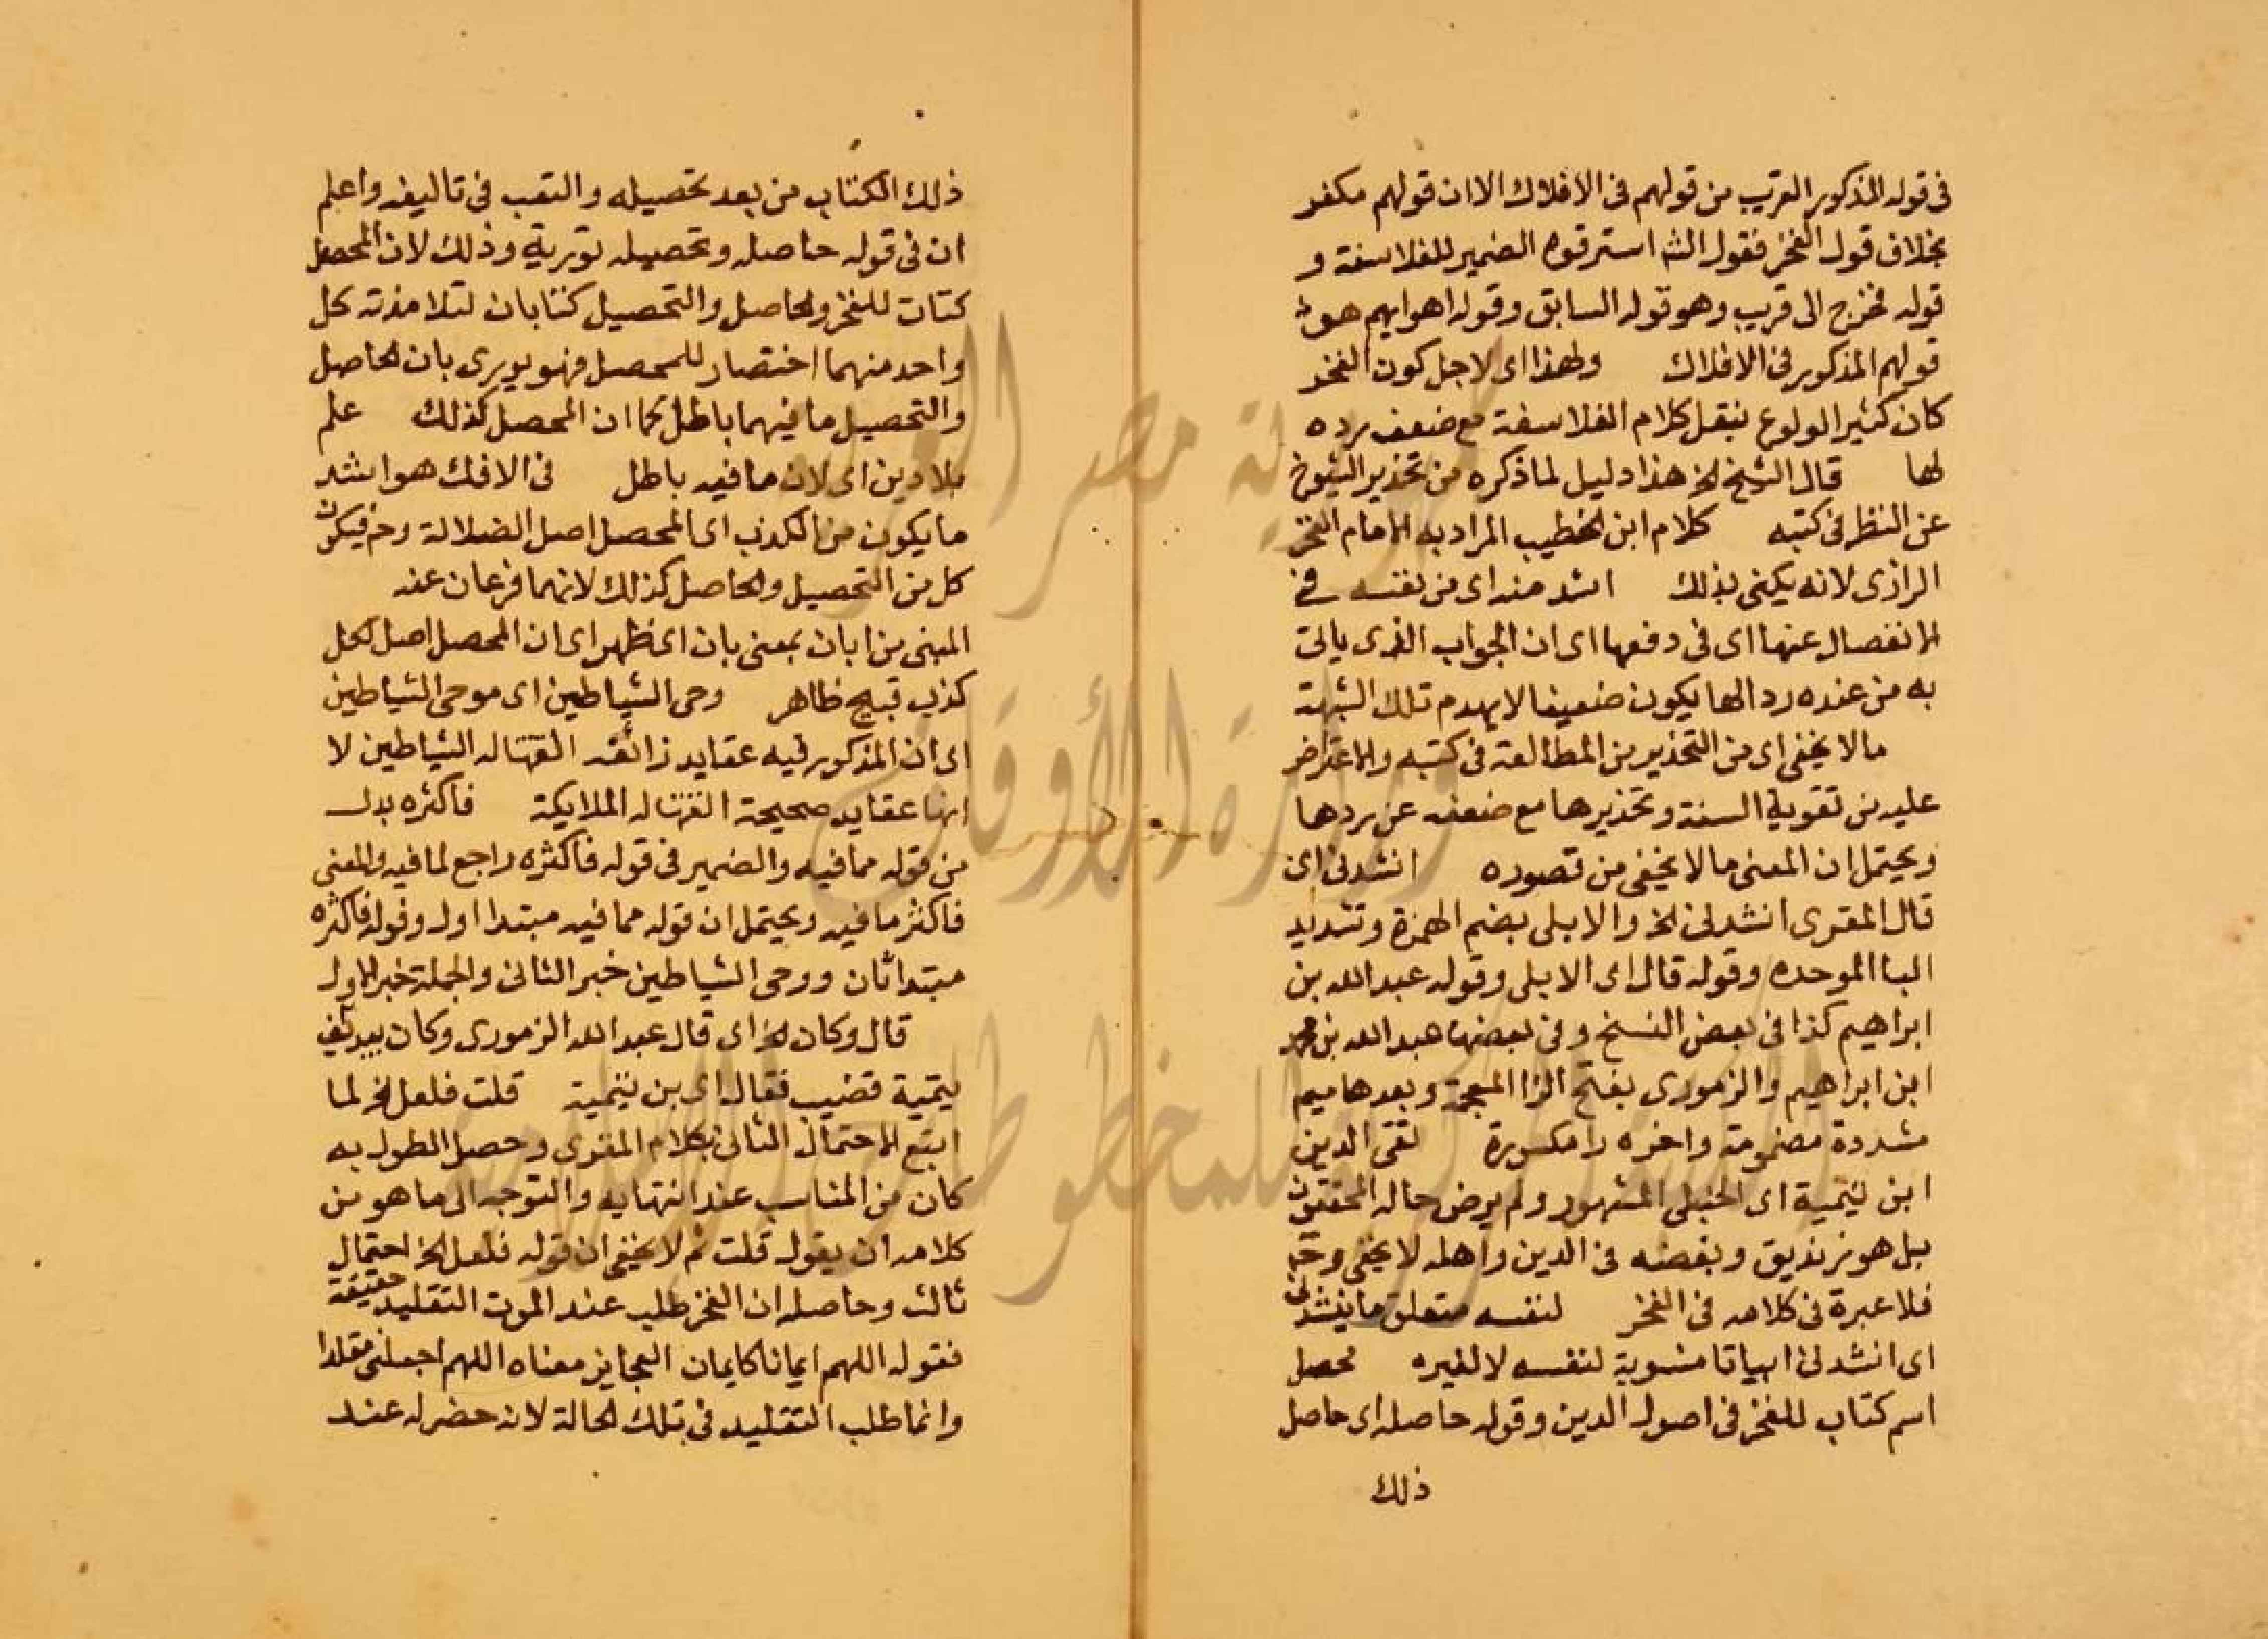 في قوله المذكور القريب من قولهم في الافلاك الا ان قولهم مكفر
بخلاف قول الفخر فقول الش استرقوه الضمير للفلاسفة و
قوله مخرج الى قريب وهو قوله السابق وقوله اهوايهم هو
قولهم المذكور في الافلاك ولهذا اى لاجل كون الفخر
كان كثير الولوع بنقل كلام الفلاسفة مع ضعف رده
لها قال الشيخ الخ هذا دليل لما ذكره من تحذير الشيوخ
عن النظر في كتبه كلام ابن الخطيب المراد به الامام الفخر
الرازى لانه يكنى بذلك اشد منه اى من نفسه في
الانفصال عنها اى في دفعها اى ان الجواب الذى ياتى
به من عنده ردا لها يكون ضعيفا لا يهدم تلك الشبهة
ما لا يخفى اى من التحذير من المطالعة في كتبه والاعتراض
عليه من تقوية السنة وتحذيرها مع ضعفه عن ردها
ويحتمل ان المعنى ما لا يخفى من قصوره انشدنى اى
قال المقرى انشدنى الخ والابلى بضم الهمزة وتشديد
البا الموحده وقوله قال اى الابلى وقوله عبد الله بن
ابراهيم كذا في بعض النسخ وفي بعضها عبد الله بن محمد
ابن ابراهيم والزمورى بفتح الزا المعجمة وبعدها ميم
مشددة مضمومة واخره را مكسورة تقى الدين
ابن تيمية اى الحنبلى المشهور ولم يرض حاله المحققون
بل هو زنديق وبغضه في الدين واهله لا يخفى وح
فلا عبرة في كلامه في الفخر لنفسه متعلق بانشدنى
اى انشدنى ابياتا منسوبة لنفسه لا لغيره محصل
اسم كتاب للفخر في اصول الدين وقوله حاصله اى حاصل
ذلك
ذلك الكتاب من بعد تحصيله والتعب في تاليفه واعلم
ان في قوله حاصله وتحصيله تورية وذلك لان المحصل
كتات للفخر والحاصل والتحصيل كتابان لتلامذته كل
واحد منهما اختصار للمحصل فهو يورى بان الحاصل
والتحصيل ما فيهما باطل كما ان المحصل كذلك علم
بلا دين اى لان ما فيه باطل في الافك هو اشد
ما يكون من الكذب اى المحصل اصل الضلالة وح فيكون
كل من التحصيل والحاصل كذلك لانهما فرعان عنه
المبنى من ابان بمعنى بان اى ظهر اى ان المحصل اصل لكل
كذب قبيح ظاهر وحى الشياطين اى موحى الشياطين
اى ان المذكور فيه عقايد زائغه القتها له الشياطين لا
انها عقايد صحيحة القتها له الملايكة فاكثره بدل
من قوله مما فيه والضمير في قوله فاكثره راجع لما فيه والمعنى
فاكثر ما فيه ويحتمل ان قوله مما فيه مبتدا اول وقوله فاكثره
مبتدا ثان ووحى الشياطين خبر الثانى والجملة خبر الاول
قال وكان الخ اى قال عبد الله الزمورى وكان بيد تقى
يتمية قضيب فقال اى بن تيمية قلت فلعل الخ لما
اتبع الاحتمال الثانى بكلام المقرى وحصل الطول به
كان من المناسب عند انتهايه والتوجه الى ما هو من
كلامه ان يقول قلت ثم لا يخفى ان قوله فلعل الخ احتمال
ثالث وحاصله ان الفخر طلب عند الموت التقليد حقيقة
فقوله اللهم ايمانا كايمان العجايز معناه اللهم اجعلنى مقلدا
وانما طلب التقليد في تلك الحالة لانه حضر له عند